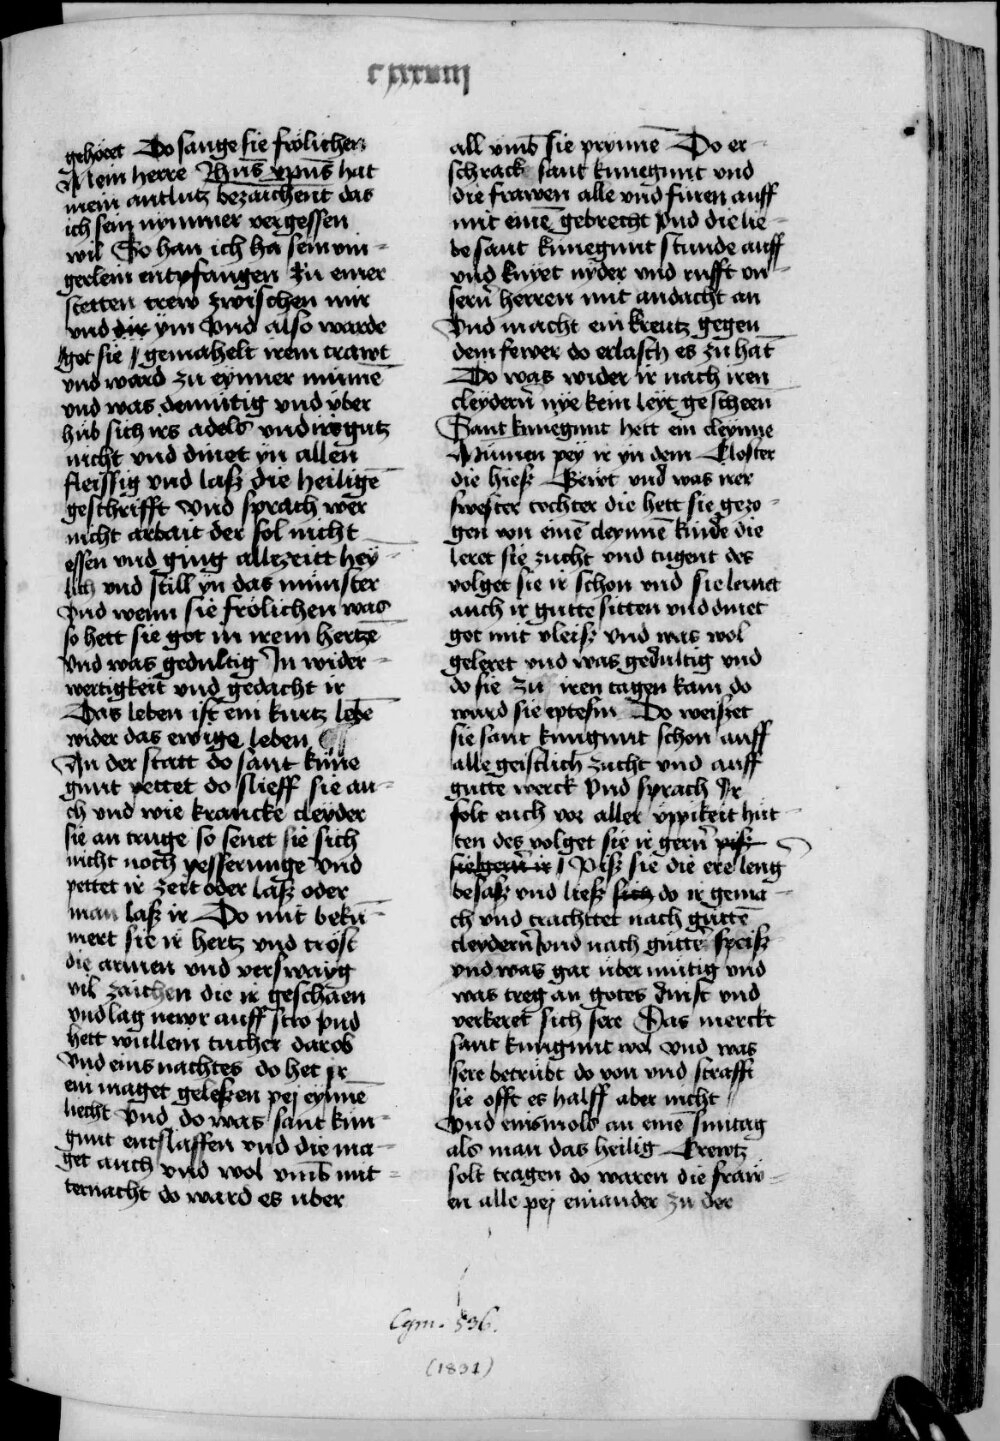 cxxxviij
gehöret Do sange sie frölichen
Mein herre Jhūs xpūs hat
mein antlutz bezaichent das
ich sein nymmer vergessen
wil So han ich ha sein vin-
gerlein entpfangen zu einer
stetten trew zwischen mir
vnd dir ÿm Vnd also warde
got sie gemahelt irem trawt
vnd ward zu eynner minnē
vnd was demütig vnd vber
hüb sich irs adels vnd irs gutz
nicht vnd dinet yn allen
fleissig vnd lasz die heiligē
geschrifft Vnd sprach wer
nicht arbait der sol nicht
essen vnd ging allezeitt hey-
lich vnd still yn das münster
Vnd wenn sie frölichen was
so hett sie got in irem hertze
Vnd was gedultig In wider-
wertigkeit vnd gedacht ir
Das leben ist ein kurtz lebē
wider das ewige leben
In der statt do sant kune
gunt pettet do slieff sie au-
ch vnd wie krancke cleyder
sie an truge so senet sie sich
nicht noch pesserunge Vnd
pettet ir zeit oder lasz oder
man lasz ir Do mit bekū-
mert sie ir hertz vnd tröst
die armen vnd verswayg
vil zaichen die ir geschaen
vnd lag newr auff stro Vnd
hett wullein tucher darob
Vnd eins nachtes do het ir
ein maget gelesen pej eynnē
liecht Vnd do was sant kun-
gunt entslaffen vnd die ma-
get auch vnd wol vmb mit-
ternacht do ward es uber
all vmb sie prynnē Do er-
schrack sant kunegunt vnd
die frawen alle vnd füren auff
mit einē gebrecht Vnd die lie-
be sant kunegunt stunde auff
vnd knyet nyder vnd rufft vn-
sern herren mit andacht an
Vnd macht ein kreutz gegen
dem fewer do erlasch es zu hāt
Do was wider ir nach iren
cleydern nye kein leyt gescheen
Sant kunegunt hett ein cleynne
Mumen pey ir yn dem Closter
die hiesz Gewt vnd was irer
swester tochter die hett sie gezo-
gen von einē cleynnē kinde die
leret sie zucht vnd tugent des
volget sie ir schon vnd sie lernet
auch ir gutte sitten vnd dinet
got mit vleisz Vnd was wol
geleret vnd was gedultig vnd
do sie zu iren tagen kam do
ward sie eptesin Do weiset
sie sant kungunt schon auff
alle geistlich zucht vnd auff
gutte werck Vnd sprach Ir
solt euch vor aller üppikeit hüt-
ten des volget sie ir gern pisz
sie gern ir Pisz sie die ere leng
besasz vnd liesz sich do ir gema-
ch vnd trachttet nach guttē
cleydern vnd nach guttē speisz
vnd was gar über mütig vnd
was treg an gotes dinst vnd
verkeret sich sere Das merckt
sant kungunt wol Vnd was
sere betrübt do von vnd strafft
sie offt es halff aber nicht
Vnd einsmols an einē suntag
als man das heilig Crewtz
solt tragen do waren die fraw-
en alle pej einander zu der
Cgm. 536.
(1831)